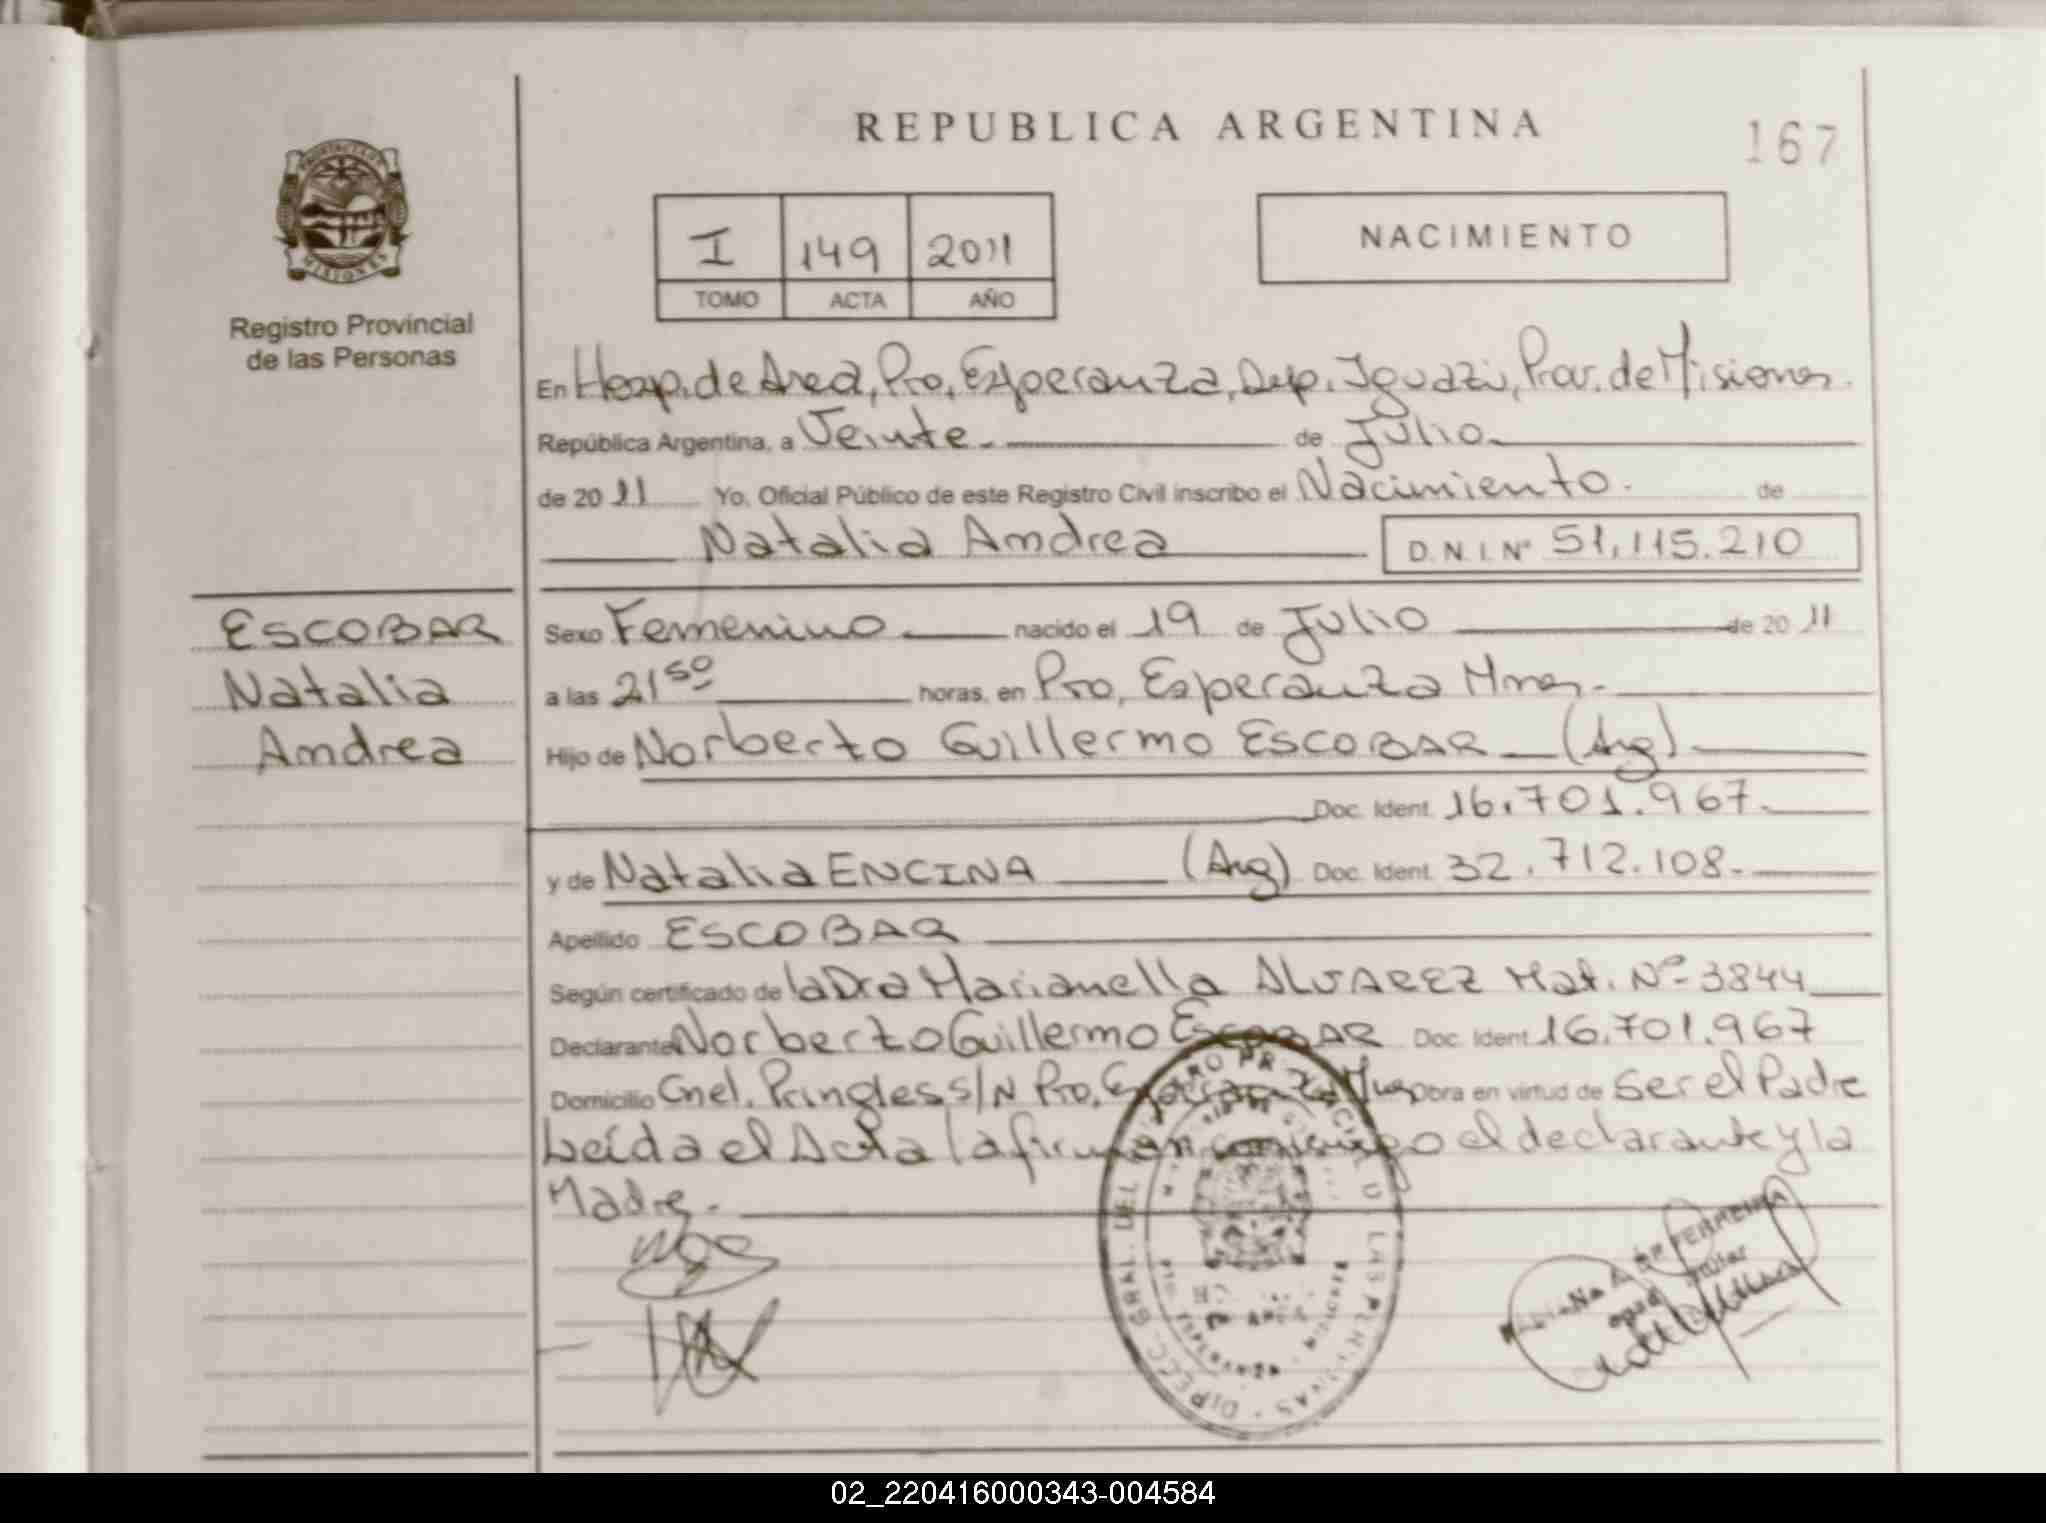 REPUBLICA ARGENTINA
167
I 149 2011
TOMO ACTA AÑO
NACIMIENTO
PROVINCIA DE
MISIONES
Registro Provincial
de las Personas
En Hosp. de Area, Pto, Esperanza, Dep. Iguazú, Prov. de Misiones.
República Argentina, a Veinte. de Julio
de 20 11 Yo, Oficial Público de este Registro Civil inscribo el Nacimiento. de
Natalia Andrea D.N.I. Nº 51.115.210
ESCOBAR
Natalia
Andrea
Sexo Femenino nacido el 19 de Julio de 20 11
a las 21 50 horas, en Pto, Esperanza Mnes.
Hijo de Norberto Guillermo ESCOBAR (Arg)
Doc. Ident. 16.701.967.
y de Natalia ENCINA (Arg) Doc. Ident. 32.712.108.
Apellido ESCOBAR
Según certificado de la Dra Marianella ALVAREZ Mat. Nº 3844
Declarante Norberto Guillermo ESCOBAR Doc. Ident. 16.701.967
Domicilio Cnel. Pringles s/N Pto. Esperanza Mnes Obra en virtud de Ser el Padre
Leída el Acta la firman conmigo el declarante y la
Madre.
02_220416000343-004584